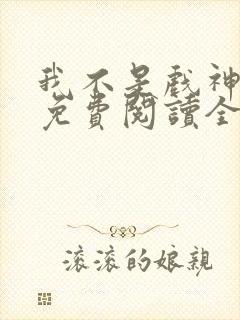 我不是戲神
免費閱讀全
滾滾的娘親